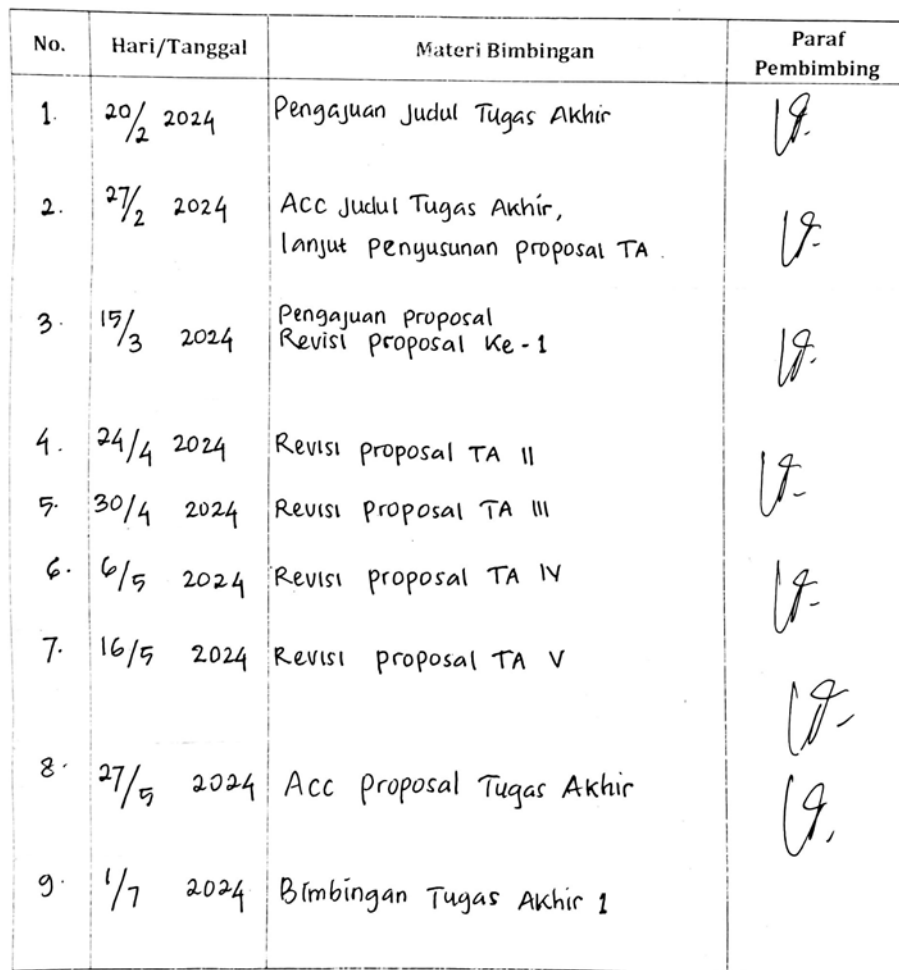 No. Hari/Tanggal Materi Bimbingan Paraf Pembimbing
1. 20/2 2024 Pengajuan Judul Tugas Akhir
2. 27/2 2024 ACC Judul Tugas Akhir,
lanjut penyusunan proposal TA.
3. 15/3 2024 Pengajuan proposal
Revisi proposal Ke-1
4. 24/4 2024 Revisi proposal TA II
5. 30/4 2024 Revisi proposal TA III
6. 6/5 2024 Revisi proposal TA IV
7. 16/5 2024 Revisi proposal TA V
8. 27/5 2024 Acc proposal Tugas Akhir
9. 1/7 2024 Bimbingan Tugas Akhir 1